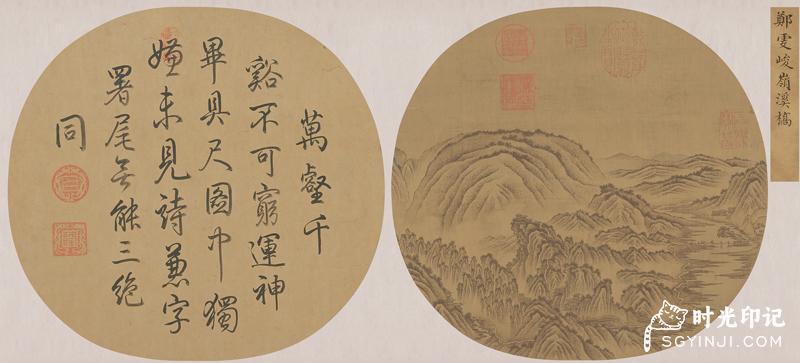 鄭雯峻嶺溪橋
萬壑千
谿不可窮運神
畢具尺圖中獨
嫌未見詩兼字
署尾無能三絶
同
时光印记
SGYINJI.COM